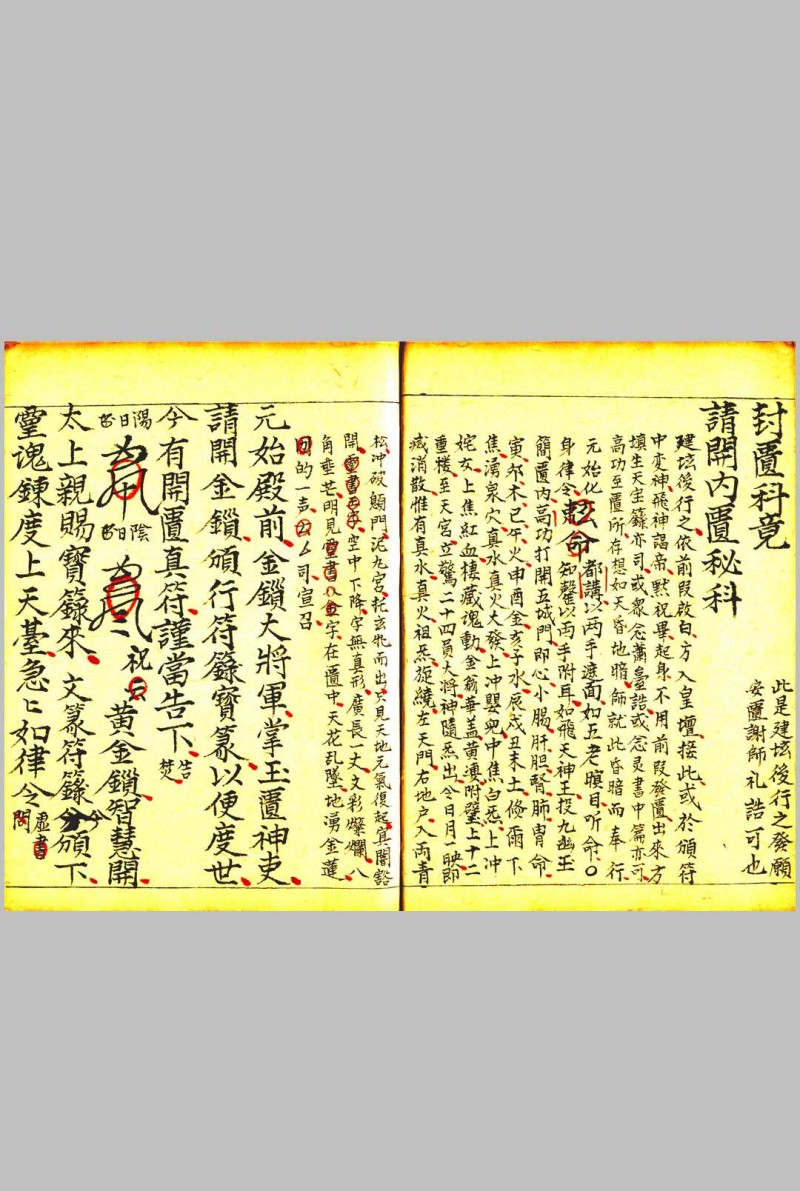 封匱科竟
此是建坛後行之發願
安匱謝師礼誥可也
請開內匱秘科
建坛後行之依前叚啟白方入皇壇接此或於頒符
中変神飛神謁帝默祝畢起身不用前叚發匱出來方
填生天宝籙亦司或衆念蕭臺誥或念灵書中篇亦可
高功至匱所存想如天昏地暗師就此昏暗而奉行
元始化 命都講以两手遮面如五老瞑目听命○
身律令 命知磬以两手附耳如飛天神王投九幽玉
簡匱内高功打開五城門即心小腸肝胆腎肺胃命
寅夘木巳午火申酉金亥子水辰戌丑未土倏爾下
焦湧泉穴真水真火大發上冲嬰兒中焦白炁上冲
姹女上焦紅血棲藏魂動金翁華盖黄婆附壁上十二
重樓至天宮立驚二十四員大將神隨炁出令日月一映即
滅消散惟有真水真火祖炁旋繞左天門右地户入两青
松冲破顖門泥九宮托玄牝而出只見天地元氣復起冥闇豁
開 空中下降字無真形廣長一丈文彩燦爛八
角垂芒明見靈書八金字在匱中天花乱墜地湧金蓮
的一声 司宣召
元始殿前金鎖大將軍掌玉匱神吏
請開金鎖頒行符籙寶篆以便度世
今有開匱真符謹當告下告焚
陽日 陰日
祝 黄金鎖智慧開
太上親賜寶籙來文篆符籙 頒下
靈魂鍊度上天臺急〻如律令 虚書